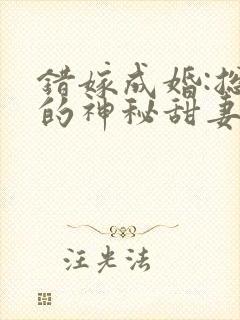 错嫁成婚:总
的神秘甜妻
汪光法